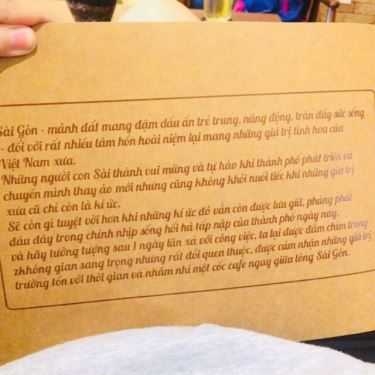 Sài Gòn - mảnh đất mang đậm dấu ấn trẻ trung, năng động, tràn đầy sức sống
- đối với rất nhiều tâm hồn hoài niệm lại mang những giá trị tinh hoa của
Việt Nam xưa.
Những người con Sài thành vui mừng và tự hào khi thành phố phát triển và
chuyển mình thay áo mới nhưng cũng không khỏi nuối tiếc khi những giá trị
xưa cũ chỉ còn là kí ức.
Sẽ còn gì tuyệt vời hơn khi những kí ức đó vẫn còn được lưu giữ, phảng phất
đâu đây trong chính nhịp sống hối hả tấp nập của thành phố ngày nay.
và hãy tưởng tượng sau 1 ngày lăn xả với công việc, ta lại được đắm chìm trong
zkhông gian sang trọng nhưng rất đỗi quen thuộc, được cảm nhận những giá trị
trường tồn với thời gian và nhâm nhi một cốc cafe ngay giữa lòng Sài Gòn.